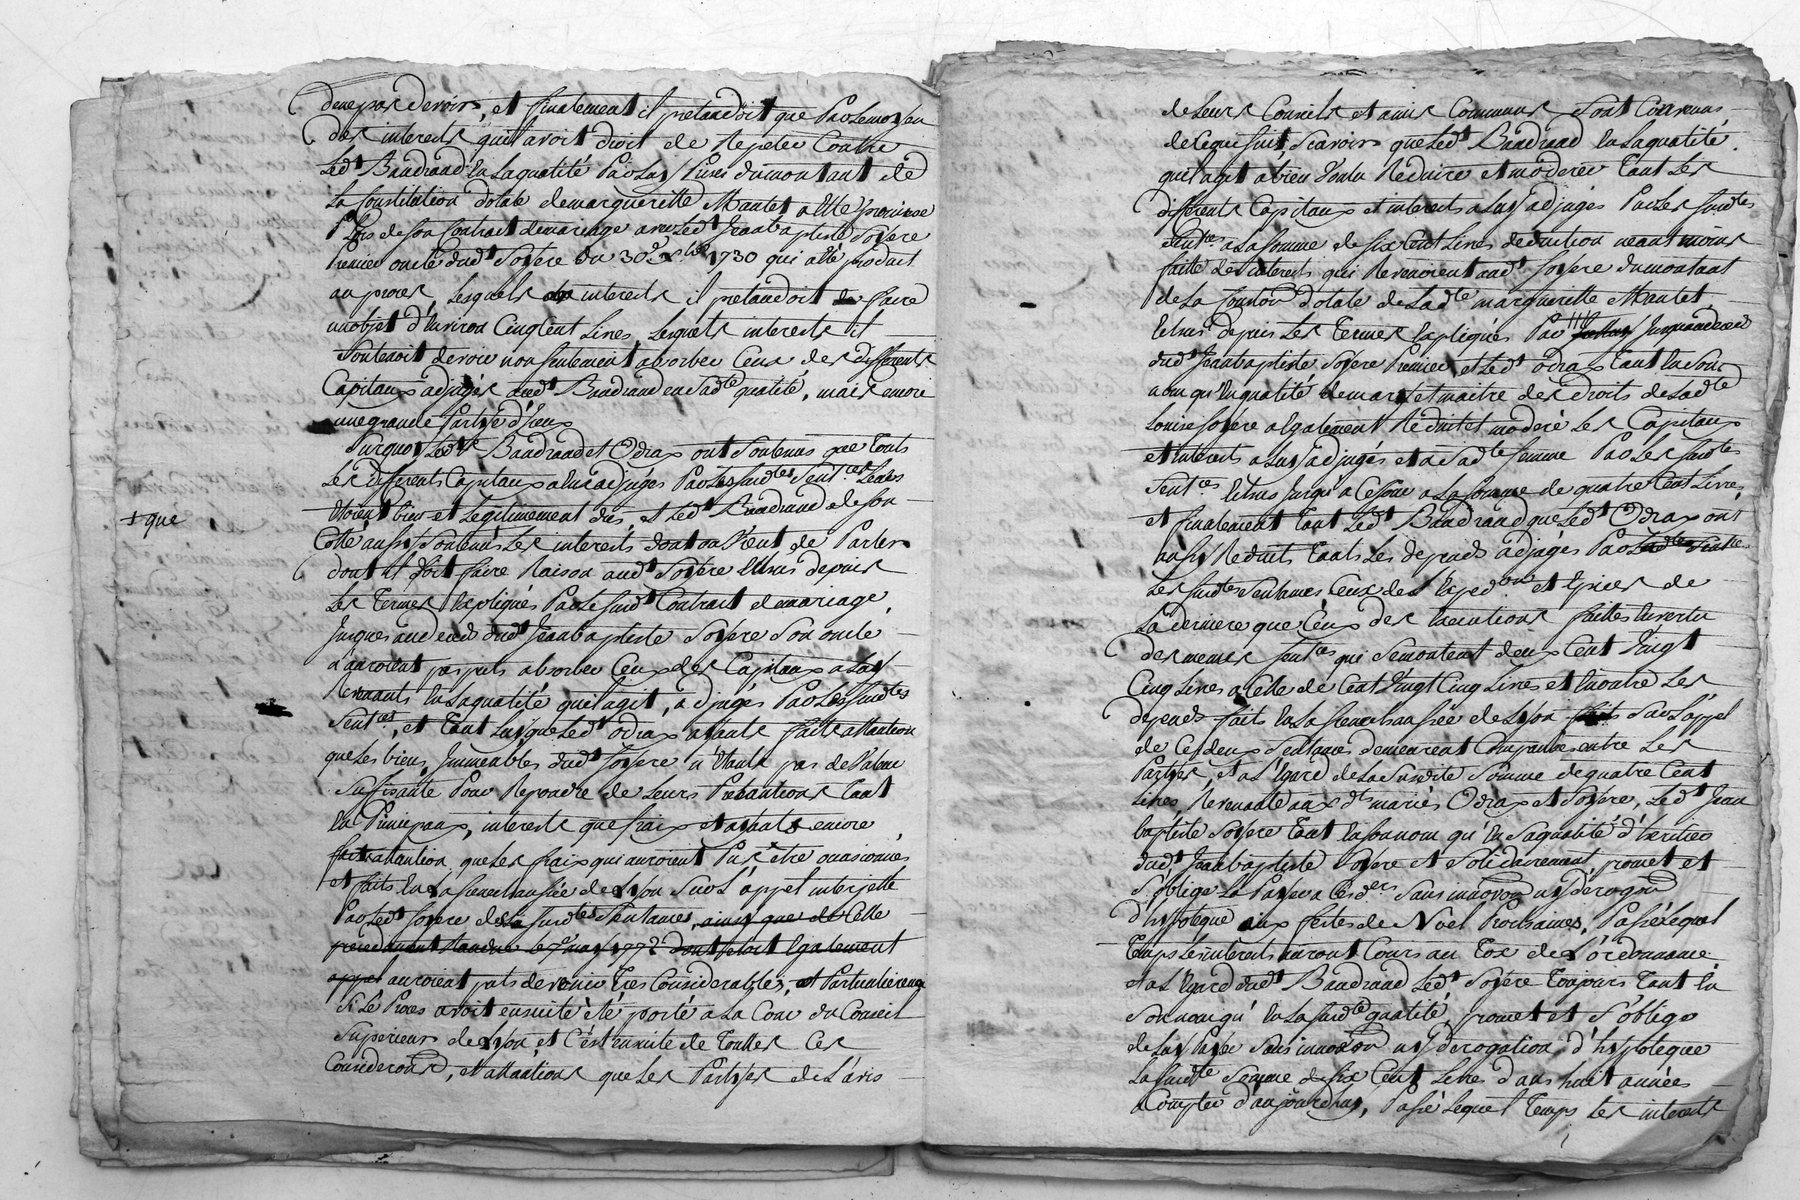 de ne pas devoir, et finalement il pretandoit que Par le moyen
des interets qu'il avoit droit de Repeter Contre
Led.t Baudrand En Sa qualité Par Luy Perçus du montant de
La Constitution dotale de marguerite Mantet a Elle promise
Lors de son Contrait de mariage avec Led.t Jean baptiste Soyere
Premier oncle dud.t Soyere du 30e Xbre 1730 qui a été produit
au proces, Lesquels interets il pretandoit faire
un objet d'Environ Cinq Cent Livres, Lesquels interets il
Soutenoit devoir non seulement absorber Ceux des differents
Capitaux adjugés aud.t Baudrand en Sad.te qualité, mais encore
une grande Partye d'Iceux
Surquoy Led.ts Baudrand et Odrax ont Soutenus que touts
Les differents Capitaux a Eux adjugés Par Les Susd.tes Sent.ces Leurs
Etoient bien et Legitimement dus, et Led.t Baudrand de Son
+ que
Coté aussy Soutenus Les interets dont on Vient de Parler
dont il doit faire Raison aud.t Soyere Echus depuis
Les Termes Expliqués Par Le Susd.t Contrait de mariage,
Jusques au deces dud.t Jean baptiste Soyere Son oncle
n'auroient pas puts absorber Ceux des Capitaux a Luy
Revenants En Sa qualité qu'il agit, adjugés Par Les Susd.tes
Sent.ces, et Tant Luy que Led.t Odrax ayants faitte attantion
que Les biens Immeubles dud.t Soyere n'Etants pas de Valeur
Suffisante Pour Repondre de Leurs Pretantions Tant
En Principaux, interets que fraix et ayants encore
fait attantion que Les fraix qui auroient Pus être ocasionnés
et faits En La Senechaussée de Lyon Sur L'appel interjetté
Par Led.t Soyere de Susd.tes Sentances, ainsy que de Celle
auroient puts devenir Tres Considerables, et Particulierement
Si Le Proces avoit ensuite été porté a La Cour du Conseil
Superieur de Lyon, et C'est ensuite de Touttes Ces
Considerons, et attantions que Les Partyes de L'avis
de Leurs Conseils et amis Communs Sont Convenus
de Ce qui Suit, Scavoir que Led.t Baudrand En Sa qualité
qu'il agit a bien Voulu Reduire et moderer Tant Les
differents Capitaux et interets a Luy adjugés Par Les Susd.tes
Sent.ces a La Somme de Six Cent Livres deduction neantmoins
faitte des interets qui Revenoient aud.t Soyere du montant
de La Constiton dotale de Lad.te marguerite Mantet
Echus depuis Les Termes Expliqués Par Jusqu'au deces
dud.t Jean baptiste Soyere Premier, et Led.t Odrax Tant En Son
nom qu'En qualité de mary et maitre des droits de Lad.te
Louise Soyere a Egalement Reduit et moderé Les Capitaux
et interets a Luy adjugés et a Sad.te femme Par Les Susd.tes
Sent.ces Echus Jusqu'a Ce Jour a La Somme de quatre Cent Livres,
et finalement Tant Led.t Baudrand que Led.t Odrax ont
aussy Reduit Touts Les depends adjugés Par
Les Susd.tes Sentances Ceux de L'Exped.on et Epices de
La derniere que Ceux des Executions faittes En vertu
des memes Sent.ces qui Se montent deux Cent Vingt
Cinq Livres a Celle de Cent Vingt Cinq Livres et Encontre Les
depends faits En La Senechaussée de Lyon Sur L'appel
de Ces deux Sentances demeureront Compansés entre Les
Partyes, et a L'Egard de La Susdite Somme de quatre Cent
Livres Revenante aux d.ts mariés Odrax et Soyere, Led.t Jean
baptiste Soyere Tant En Son nom qu'En Sa qualité d'heritier
dud.t Jean baptiste Soyere et Solidairement promet et
S'oblige La Payer a Ces d.ers Sans innovon ny derogon
d'hypoteque aux fêtes de Noel Prochaines, Passé Lequel
Temps Les interets auront Cours au Tox de L'ordonnance,
et a L'Egard dud.t Baudrand Led.t Soyere Toujours Tant En
Son nom qu'En La Susd.te qualité, promet et S'oblige
de Luy Payer Sans innovon ny derogation d'hypoteque
La Susd.te Somme de Six Cent Livres dans huit années
a Compter d'aujourdhuy, Passé Lequel Temps Les interets